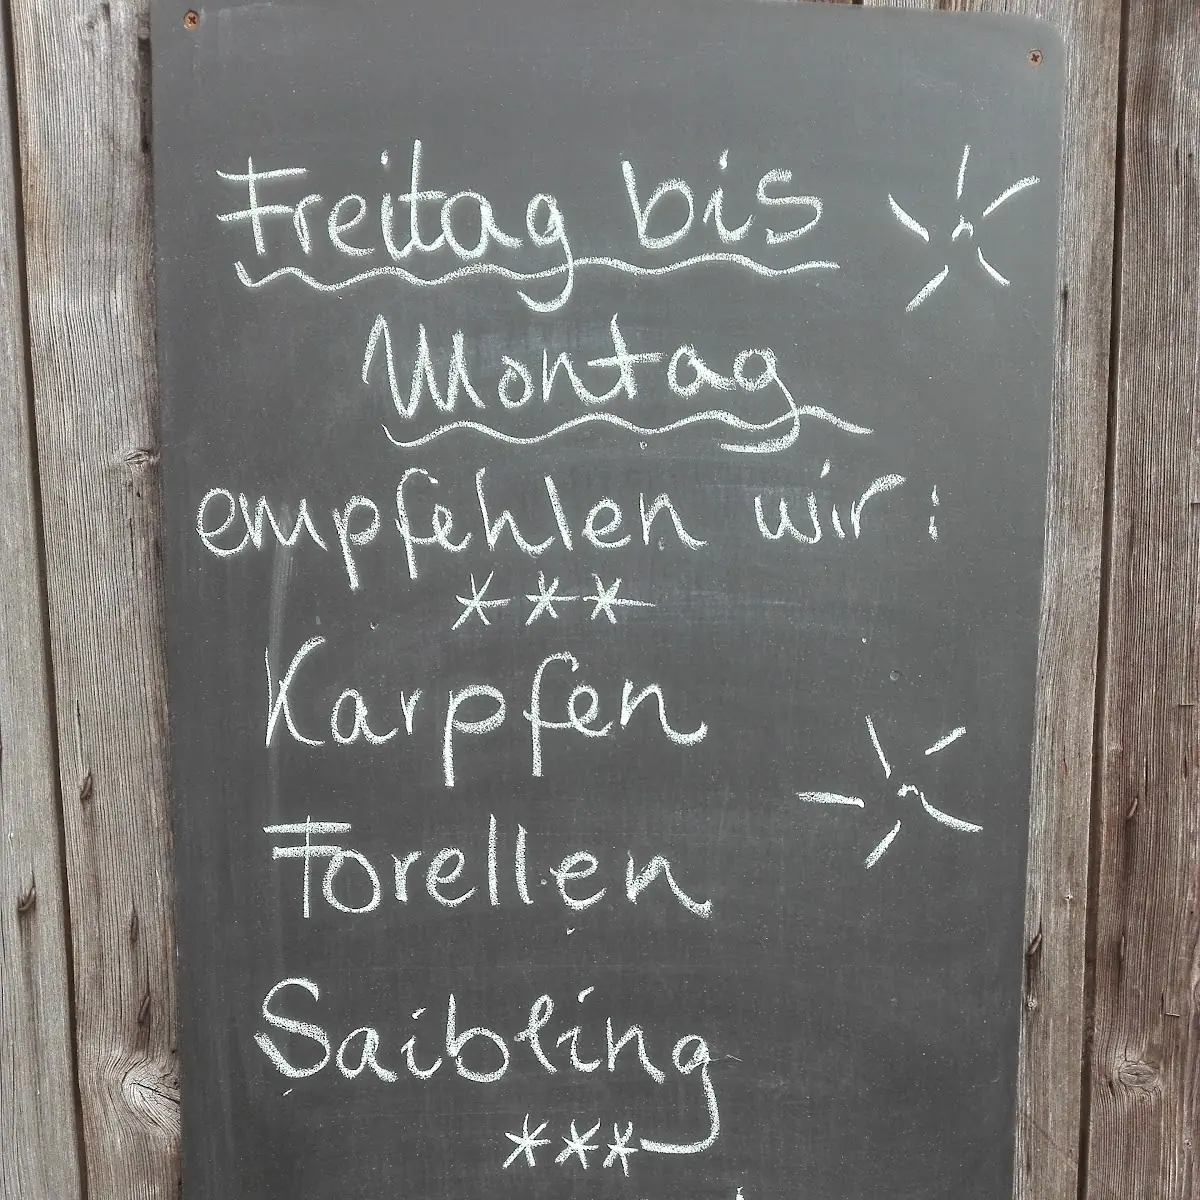 Freitag bis
Montag
empfehlen wir:
***
Karpfen
Forellen
Saibling
***